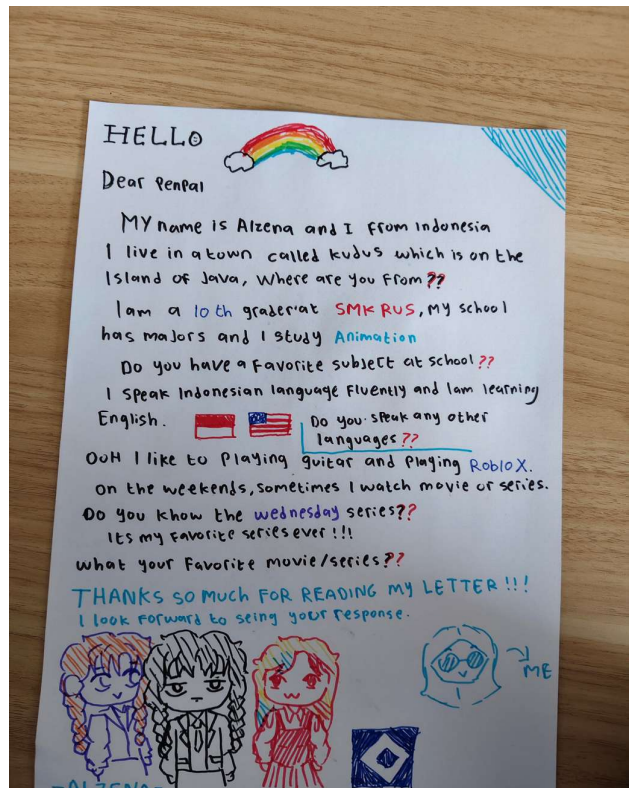 HELLO
Dear Penpal
MY name is Alzena and I From Indonesia
I live in a town called kudus which is on the
Island of Java, Where are you From??
I am a 10th grader at SMK RUS, my school
has majors and I study Animation
Do you have a Favorite subject at school??
I speak Indonesian language Fluently and I am learning
English.
Do you speak any other
languages??
OOH I like to Playing guitar and Playing Roblox.
on the weekends, sometimes I watch movie or series.
Do you know the wednesday series??
Its my Favorite series ever!!!
what your Favorite movie/series??
THANKS SO MUCH FOR READING MY LETTER!!!
I look forward to seing your response.
ME
-ALZENA-